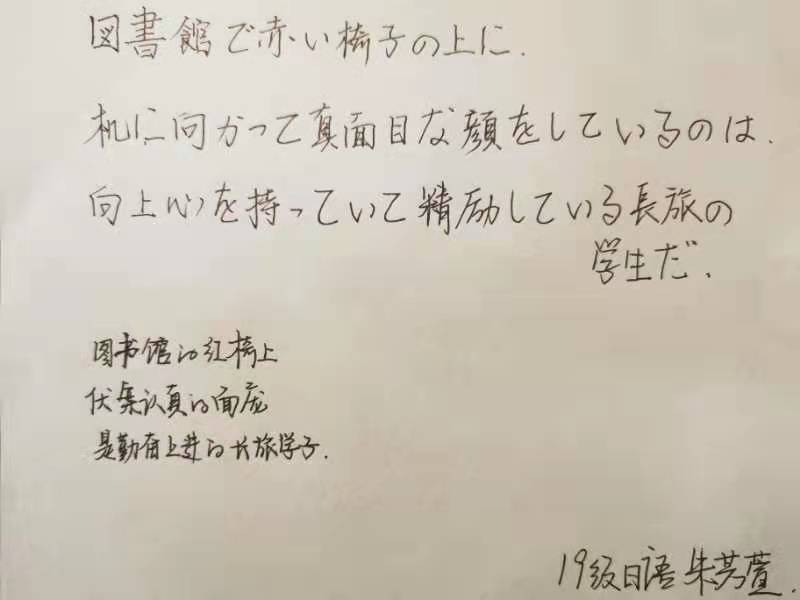 図書館で赤い椅子の上に.
机に向かって真面目な顔をしているのは.
向上心を持っていて精励している長旅の
学生だ.
图书馆的红椅上
伏案认真的面庞
是勤奋上进的长旅学子.
19级日语 朱芮萱.